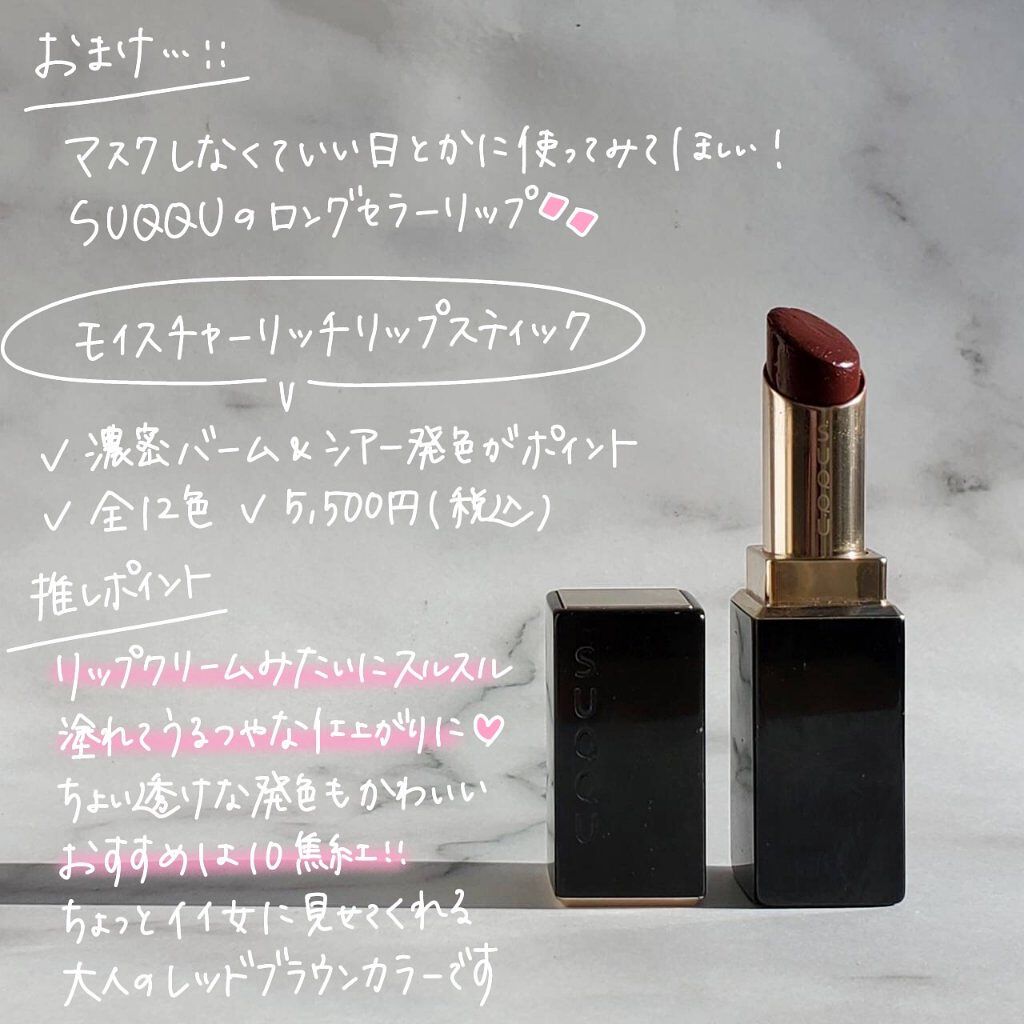 おまけ…!!
マスクしなくていい日とかに使ってみてほしい!
SUQQUのロングセラーリップ
モイスチャーリッチリップスティック
✓ 濃密バーム&シアー発色がポイント
✓ 全12色 ✓ 5,500円(税込)
推しポイント
リップクリームみたいにスルスル
塗れてうるつやな仕上がりに♥
ちょい透けな発色もかわいい
おすすめは10焦紅!!
ちょっとイイ女に見せてくれる
大人のレッドブラウンカラーです
SUQQU
SUQQU